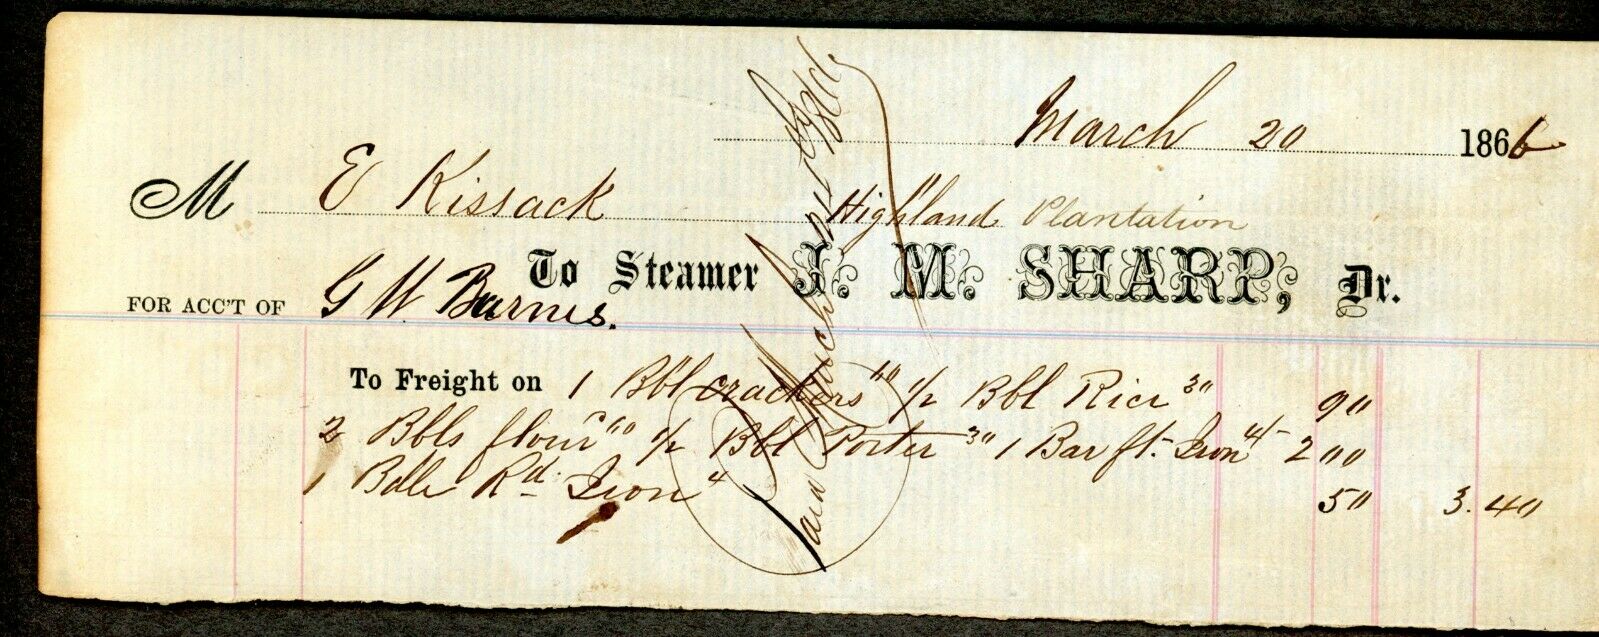 March 20 1866
M E Kissack Highland Plantation
To Steamer J. M. SHARP, Dr.
FOR ACC'T OF G W Barnes.
To Freight on 1 Bbl crackers "" 1/2 Bbl Rice 3" 9"
2 Bbls flour "" 1/2 Bbl Porter 3" 1 Bar ft. Iron 4 2 ""
1 Bdle Rd Iron 4 5" 3.40
Paid